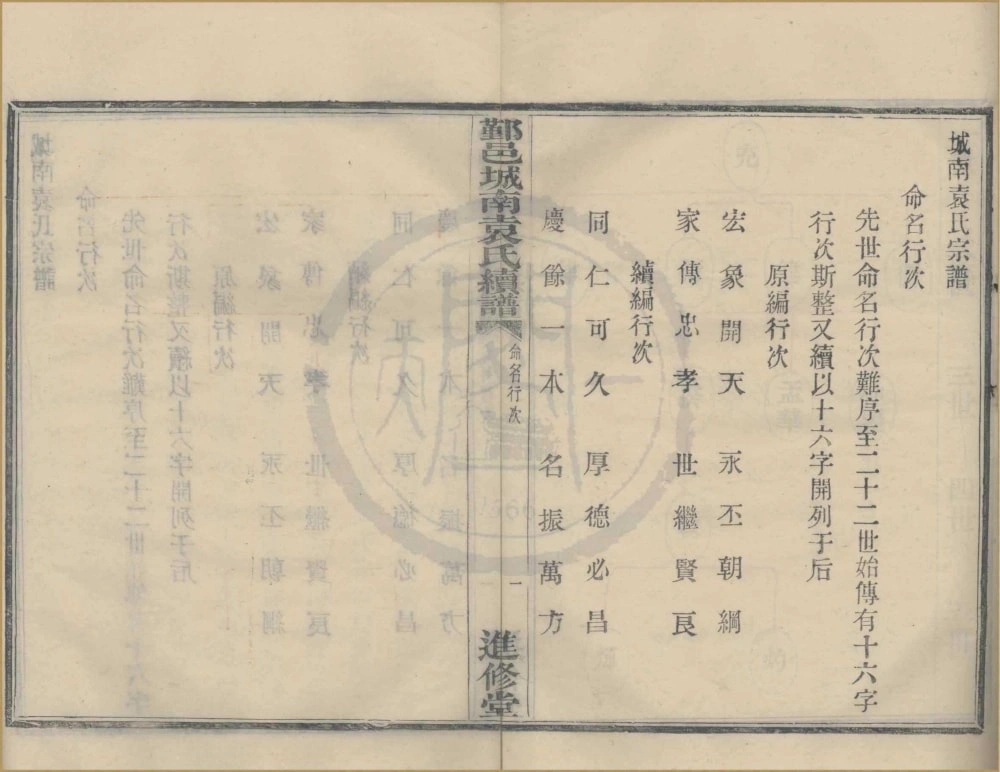 城南袁氏宗譜
命名行次
先世命名行次難序至二十二世始傳有十六字
行次斯整又續以十六字開列于后
原編行次
宏象開天　永丕朝綱
家傳忠孝　世繼賢良
續編行次
同仁可久　厚德必昌
慶餘一本　名振萬方
鄞邑城南袁氏續譜
命名行次
一
進修堂